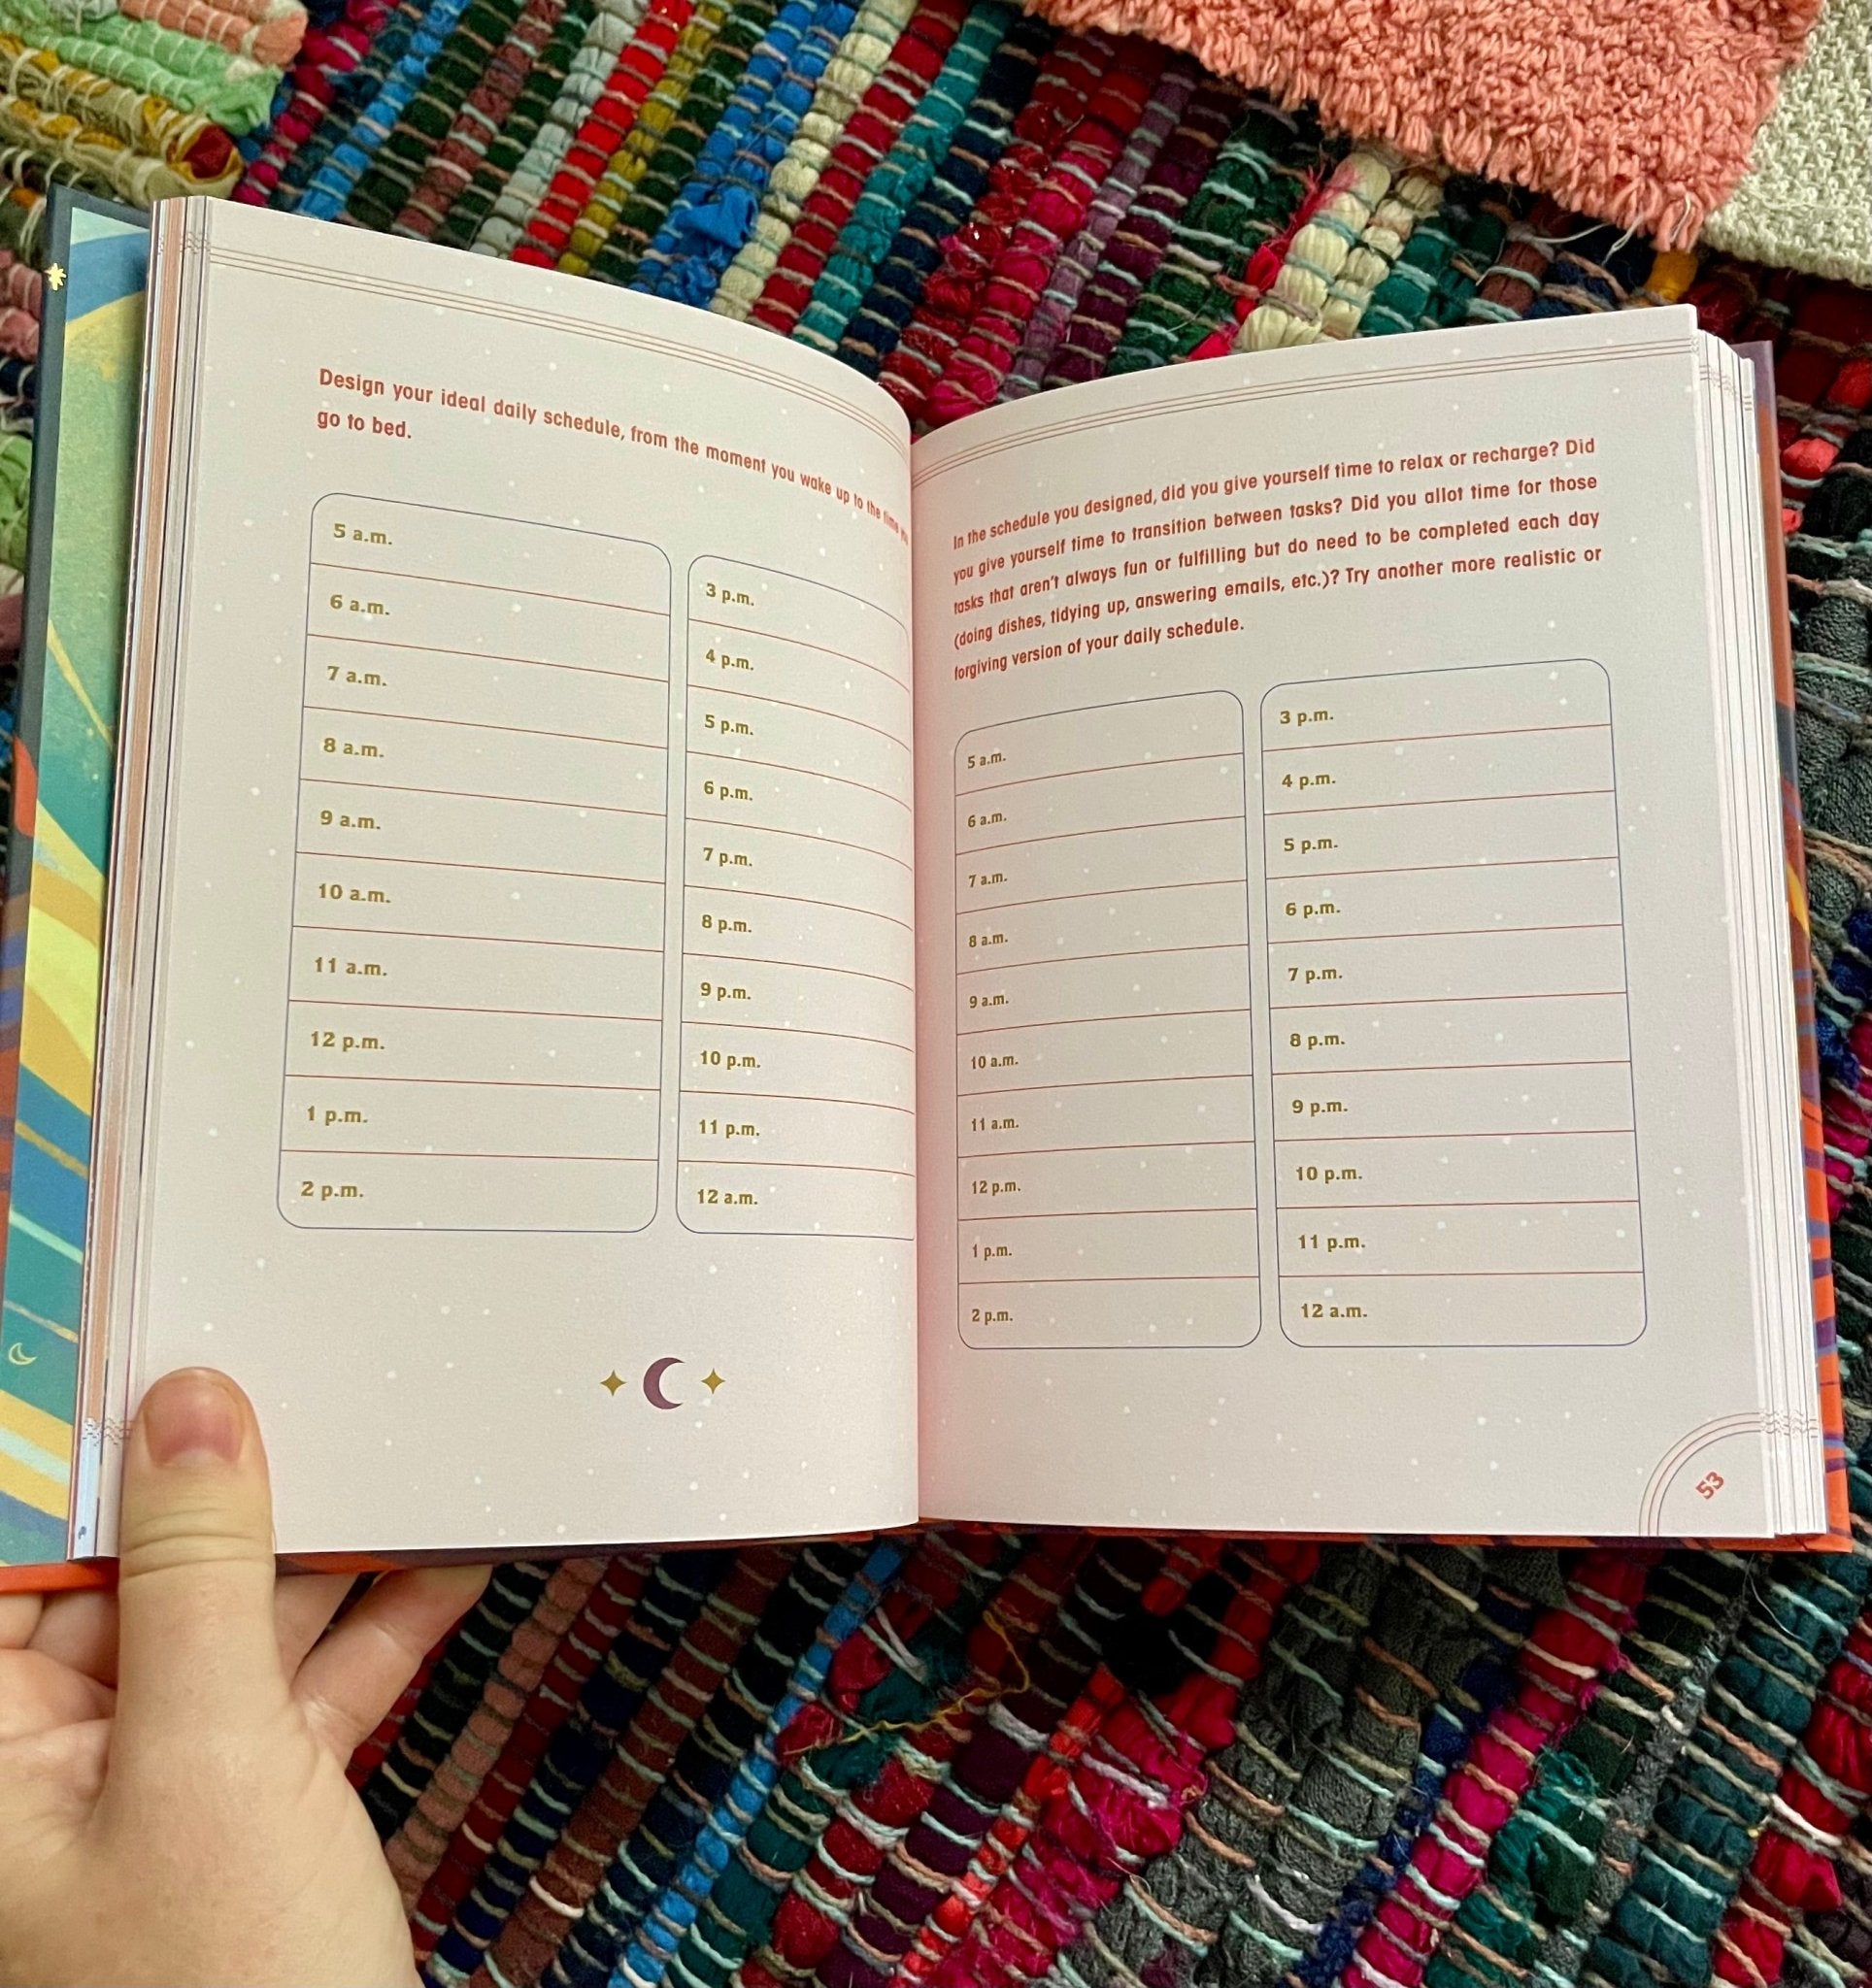 Design your ideal daily schedule, from the moment you wake up to the time you
go to bed.
5 a.m.
6 a.m.
7 a.m.
8 a.m.
9 a.m.
10 a.m.
11 a.m.
12 p.m.
1 p.m.
2 p.m.
3 p.m.
4 p.m.
5 p.m.
6 p.m.
7 p.m.
8 p.m.
9 p.m.
10 p.m.
11 p.m.
12 a.m.
In the schedule you designed, did you give yourself time to relax or recharge? Did
you give yourself time to transition between tasks? Did you allot time for those
tasks that aren't always fun or fulfilling but do need to be completed each day
(doing dishes, tidying up, answering emails, etc.)? Try another more realistic or
forgiving version of your daily schedule.
5 a.m.
6 a.m.
7 a.m.
8 a.m.
9 a.m.
10 a.m.
11 a.m.
12 p.m.
1 p.m.
2 p.m.
3 p.m.
4 p.m.
5 p.m.
6 p.m.
7 p.m.
8 p.m.
9 p.m.
10 p.m.
11 p.m.
12 a.m.
53